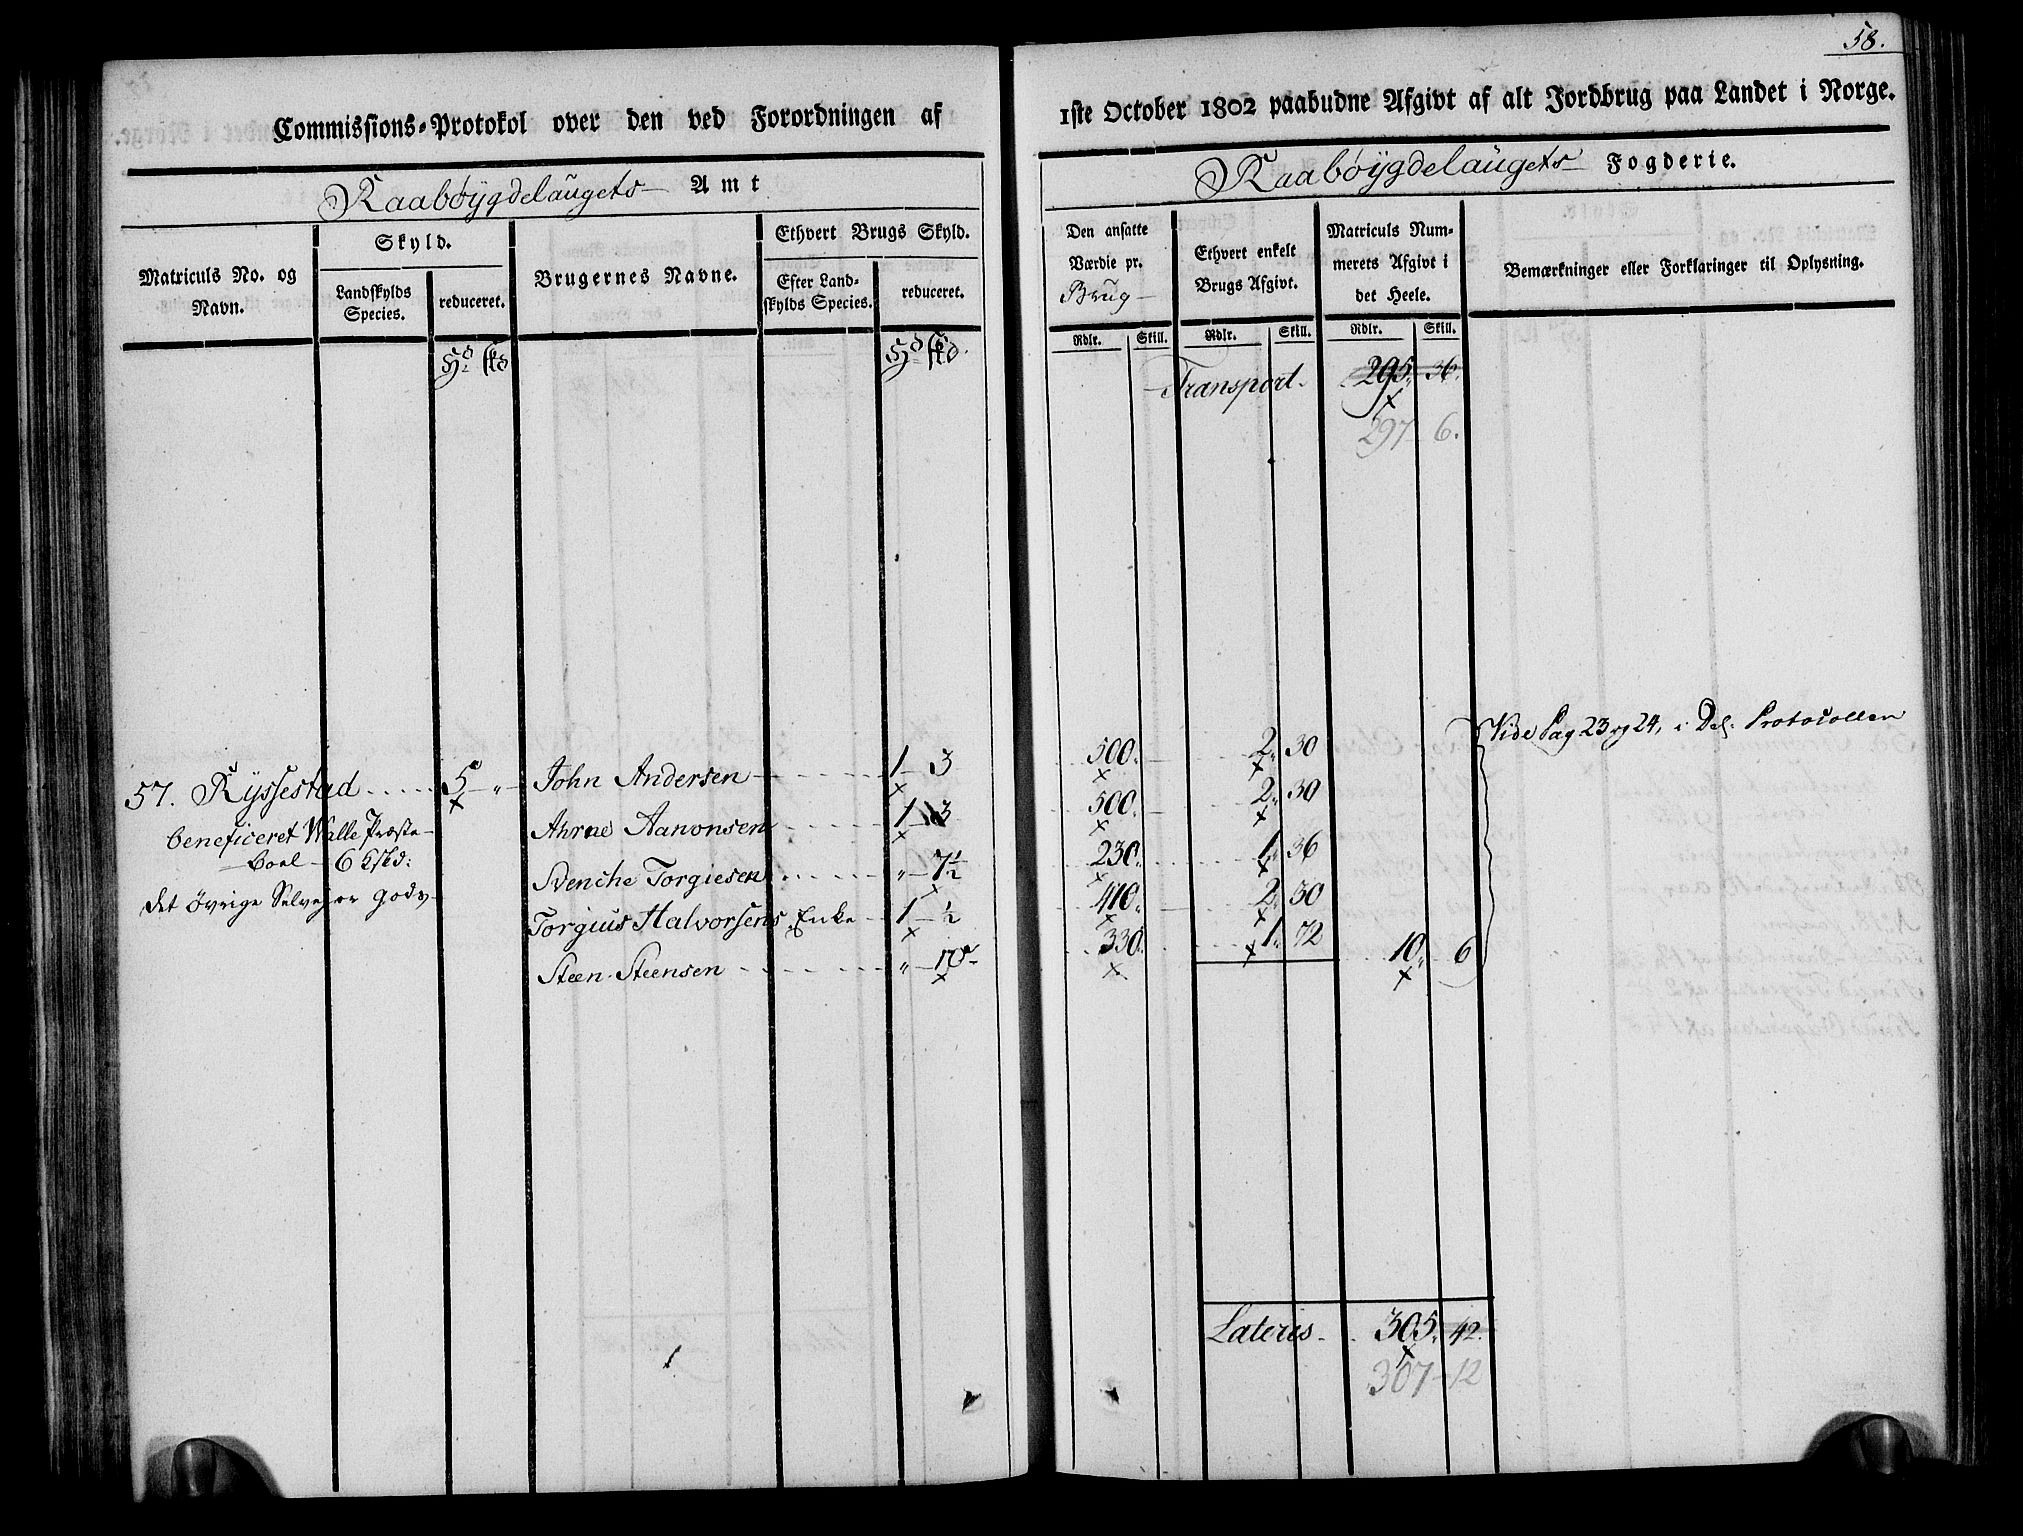 58.
Commissions-Protokol over den ved Forordningen af 1ste October 1802 paabudne Afgivt af alt Jordbrug paa Landet i Norge.
Raabøygdelaugets Amt
Raabøygdelaugets Fogderie.
Matriculs No. og Navn.
Skyld.
Landskylds Species.
reduceret.
Brugernes Navne.
Ethvert Brugs Skyld.
Efter Landskylds Species.
reduceret.
Den ansatte Værdie pr. Brug
Ethvert enkelt Brugs Afgivt.
Matriculs Nummerets Afgivt i det Heele.
Bemærkninger eller Forklaringer til Oplysning.
Rdlr. Skill. Rdlr. Skill. Rdlr. Skill.
Transport 295. 36.
297 6.
Vide Pag 23 og 24, i Del. Protocollen
57. Ryssestad 5 " John Andersen 1 3 500. 2. 30
beneficeret Walle Præste- Ahrne Aanonsen 1 3 500. 2. 30
boel 6 Skd: Svenche Torgiesen " 7½ 230. 1. 36
det øvrige Selvejer gods Torgius Halvorsens Enke 1 ½ 410. 2. 30
Steen Steensen " 10 330. 1. 72 10. 6
Lateris 305. 42.
307 12